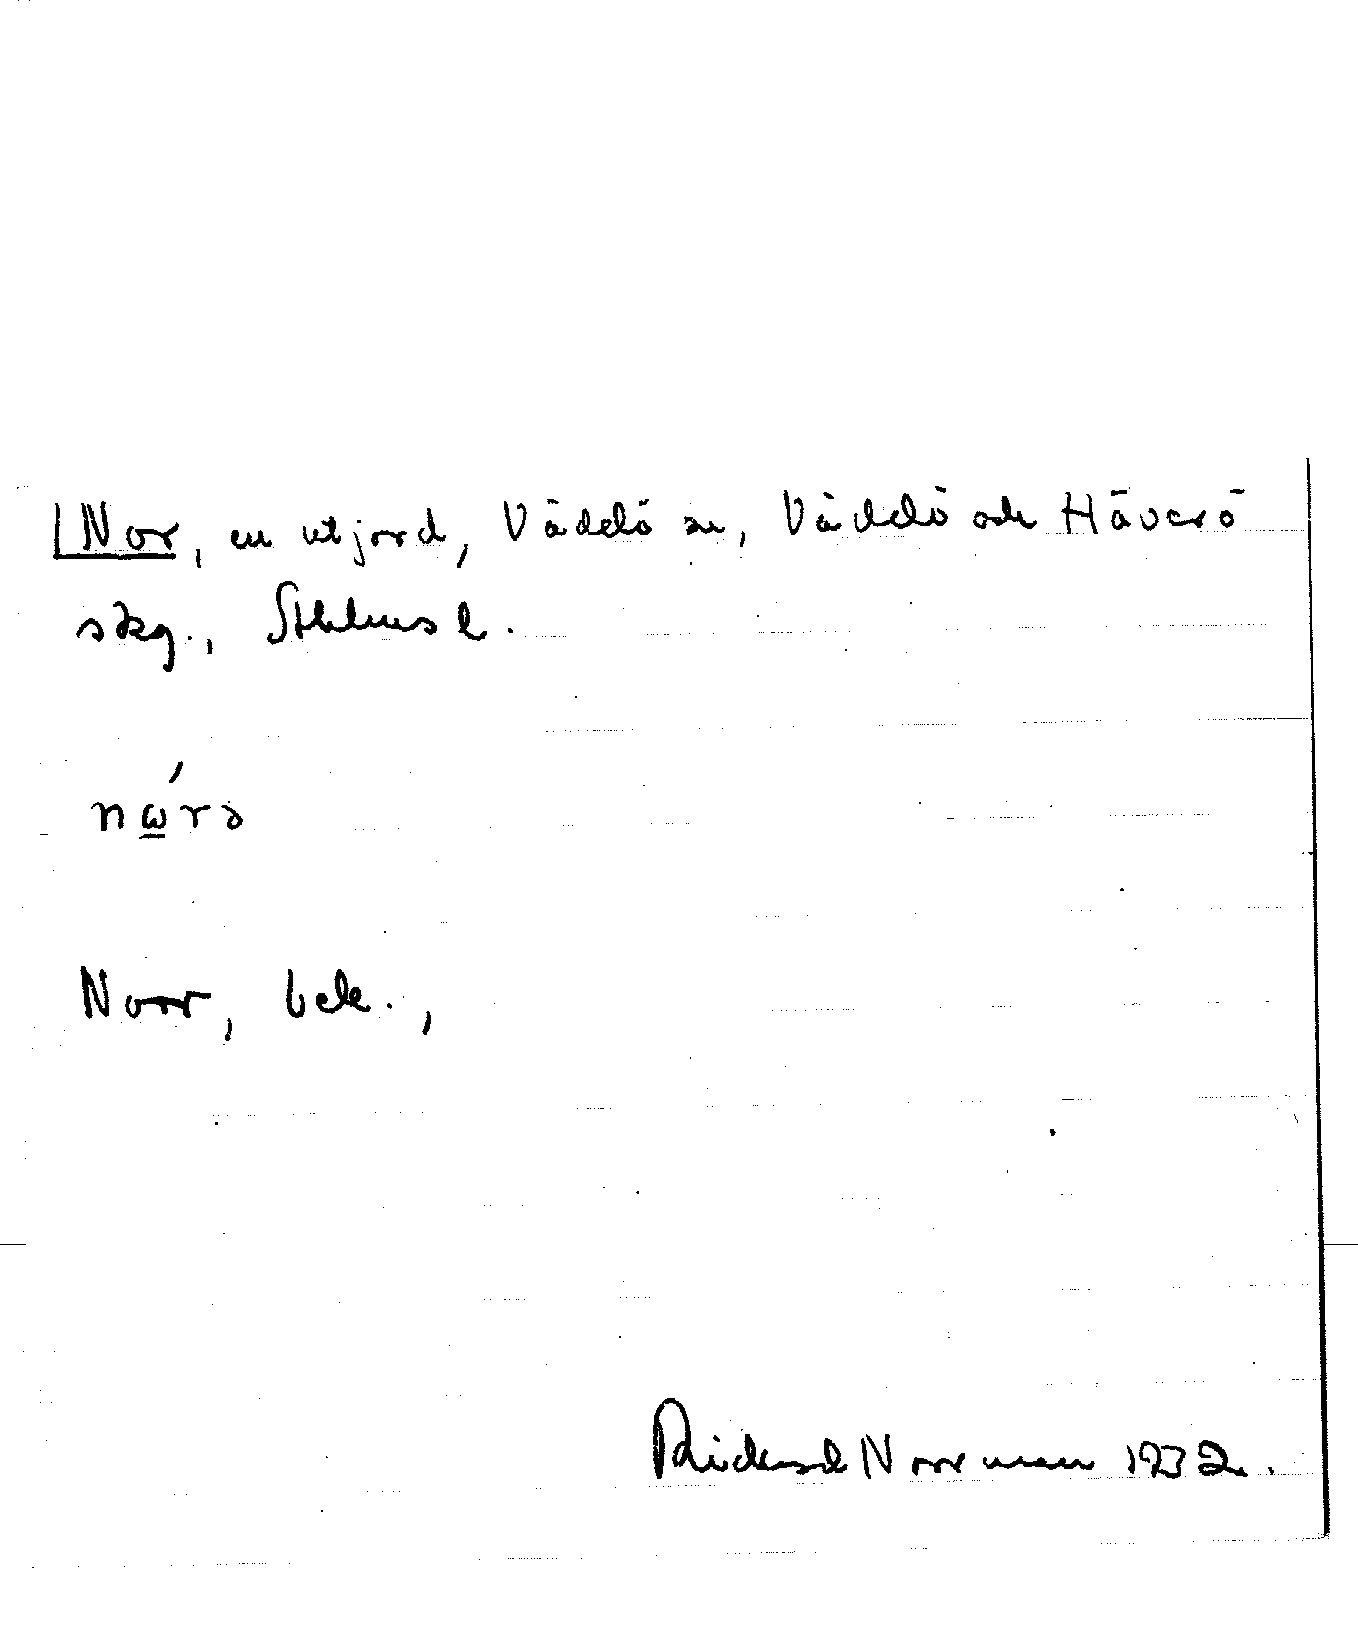 Nor, en utjord, Väddö sn, Väddö och Häverö
skg., Sthlms l.
nώ̲rə
Norr, bek.,
Rickard Norrman 1932.